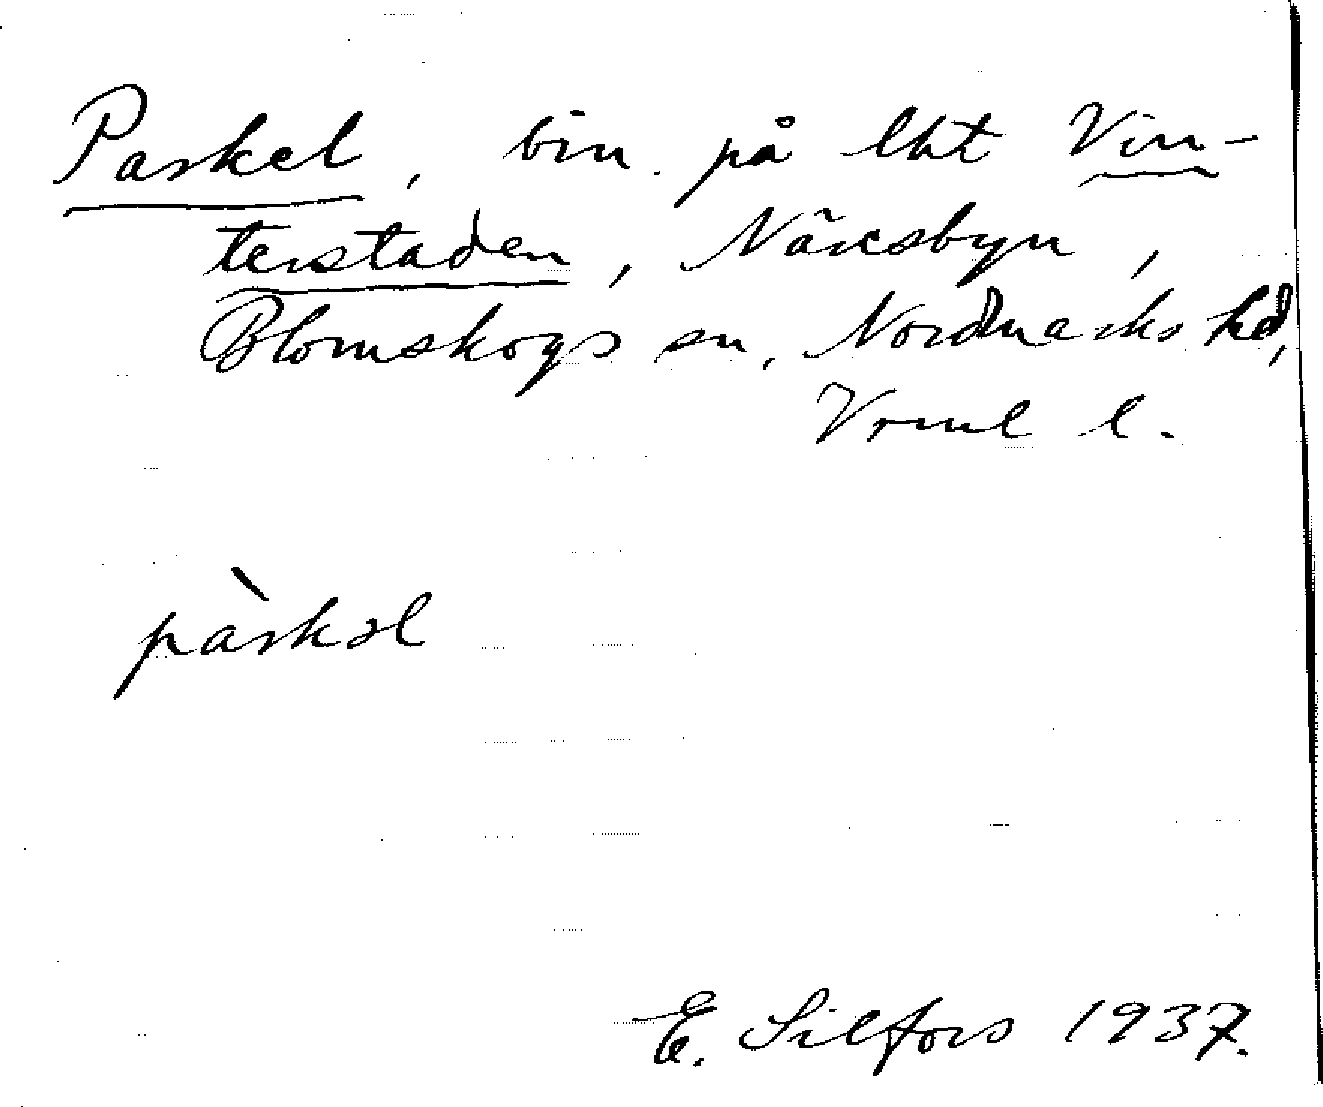 Paskel, bin. på lht Vin-
terstaden, Näresbyn,
Blomskogs sn, Nordmarks hd,
Vrml l.
pàskəl
E. Silfors 1937.